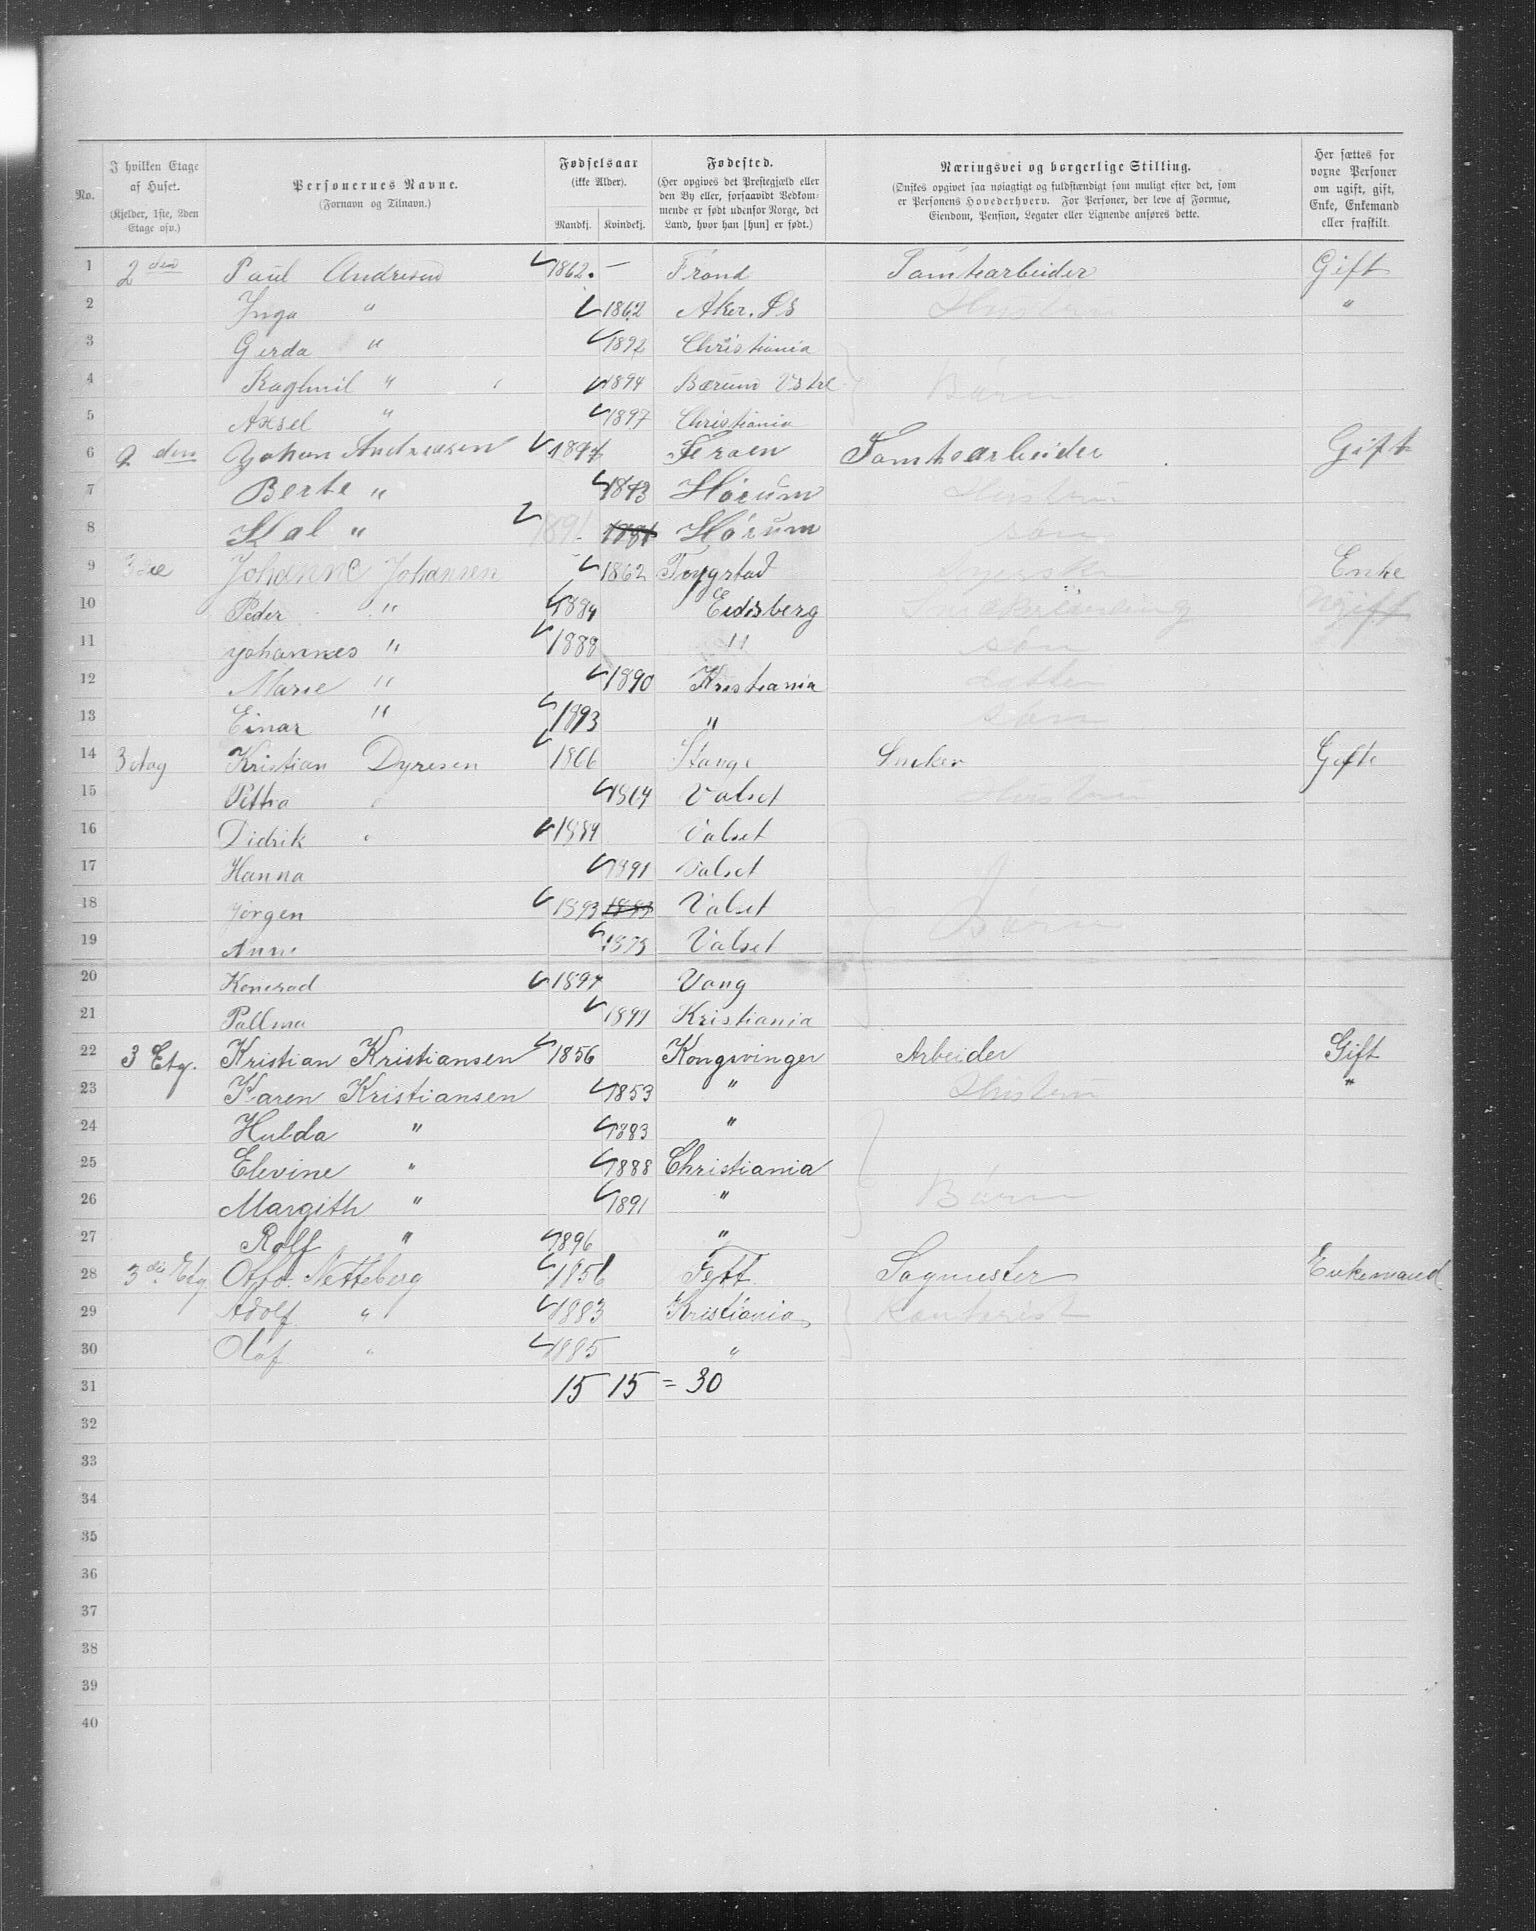 No.
I hvilken Etage af Huset. (Kjelder, 1ste, 2den Etage osv.)
Personernes Navne. (Fornavn og Tilnavn.)
Fødselsaar (ikke Alder). Mandkj. Kvindekj.
Fødested. (Her opgives det Prestegjæld eller den By eller, forsaavidt Vedkommende er født udenfor Norge, det Land, hvor han [hun] er født.)
Næringsvei og borgerlige Stilling. (Ønskes opgivet saa nøiagtigt og fuldstændigt som muligt efter det, som er Personens Hovederhverv. For Personer, der leve af Formue, Eiendom, Pension, Legater eller Lignende anføres dette.)
Her sættes for voxne Personer om ugift, gift, Enke, Enkemand eller fraskilt.
1 2den Paul Andresen 1862. — Trond Tomtearbeider Gift
2 Inga " 1862 Aker. Hustru "
3 Gerda " 1892 Christiania
4 " 1894 Bærum Børn
5 Axsel " 1897 Christiania
6 2den Johan Andreasen Tomtearbeider Gift
7 Berte " 1843 Hustru
8 " 1891 1891 Søn
9 3die Johanne Johansen 1862 Trygstad Enke
10 Peder " 1884 Eidsberg Ugift
11 Johannes " 1888 " Søn
12 Marie " 1890 Kristiania Datter
13 Einar " 1893 " Søn
14 3 etag Kristian Dyresen 1866 Stange Sneker Gifte
15 Petha " 1864 Valset Hustru
16 Didrik " 1889 Valset
17 Hanna 1891 Valset
18 Jørgen 1893 1893 Valset Børn
19 Anne Valset
20 Konerad 1897 Vang
21 Pallma 1899 Kristiania
22 3 Etg. Kristian Kristiansen 1856 Kongsvinger Arbeider Gift
23 Karen Kristiansen 1853 " Hustru "
24 Hulda " 1883 "
25 Elevine " 1888 Christiania
26 Margith " 1891 " Børn
27 Rolf " 1896 "
28 3die Etg Otto Netteberg 1856 Fett Sagmester Enkemand
29 Adolf " 1883 Kristiania Kontorist
30 Olaf " 1885 "
31 15 15 = 30
32
33
34
35
36
37
38
39
40